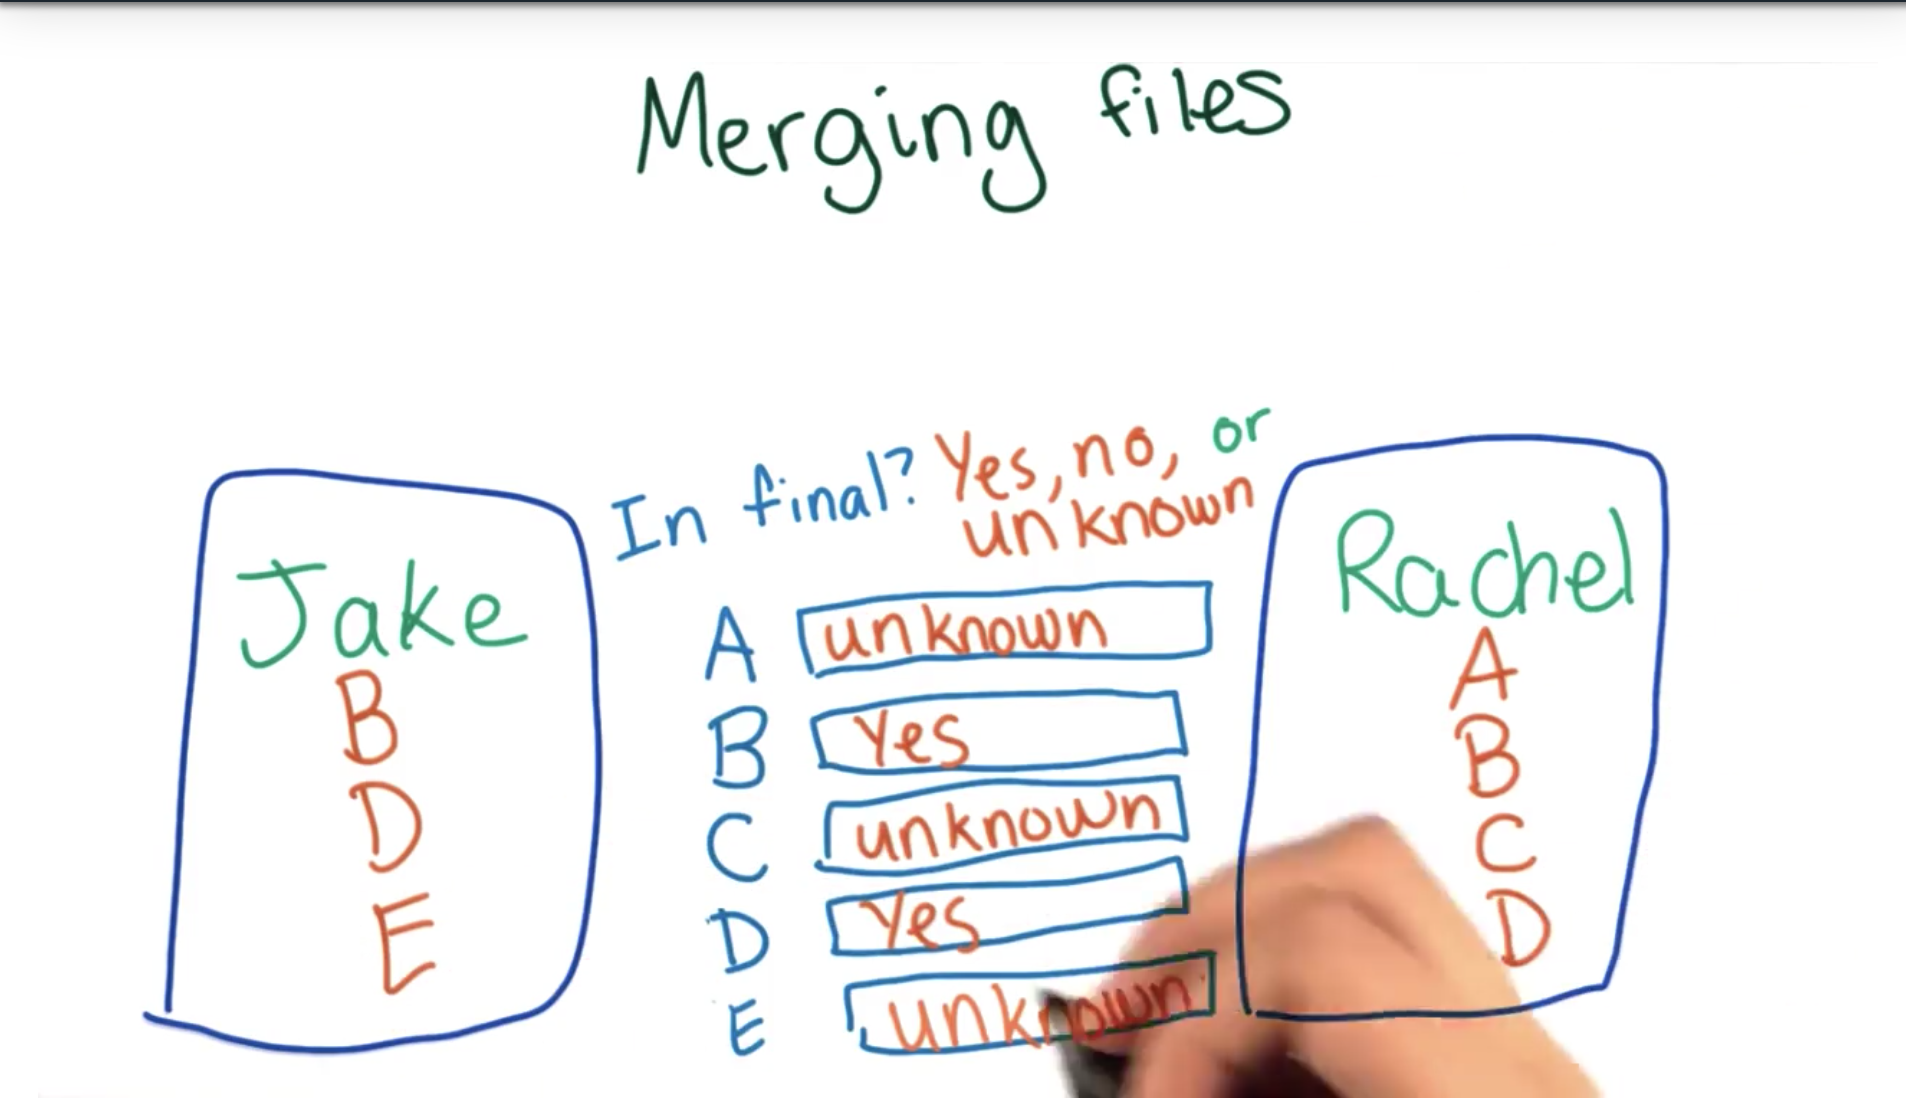 Merging files
In final? Yes, no, or
unknown
Jake
B
D
E
A unknown
B Yes
C unknown
D Yes
E unknown
Rachel
A
B
C
D